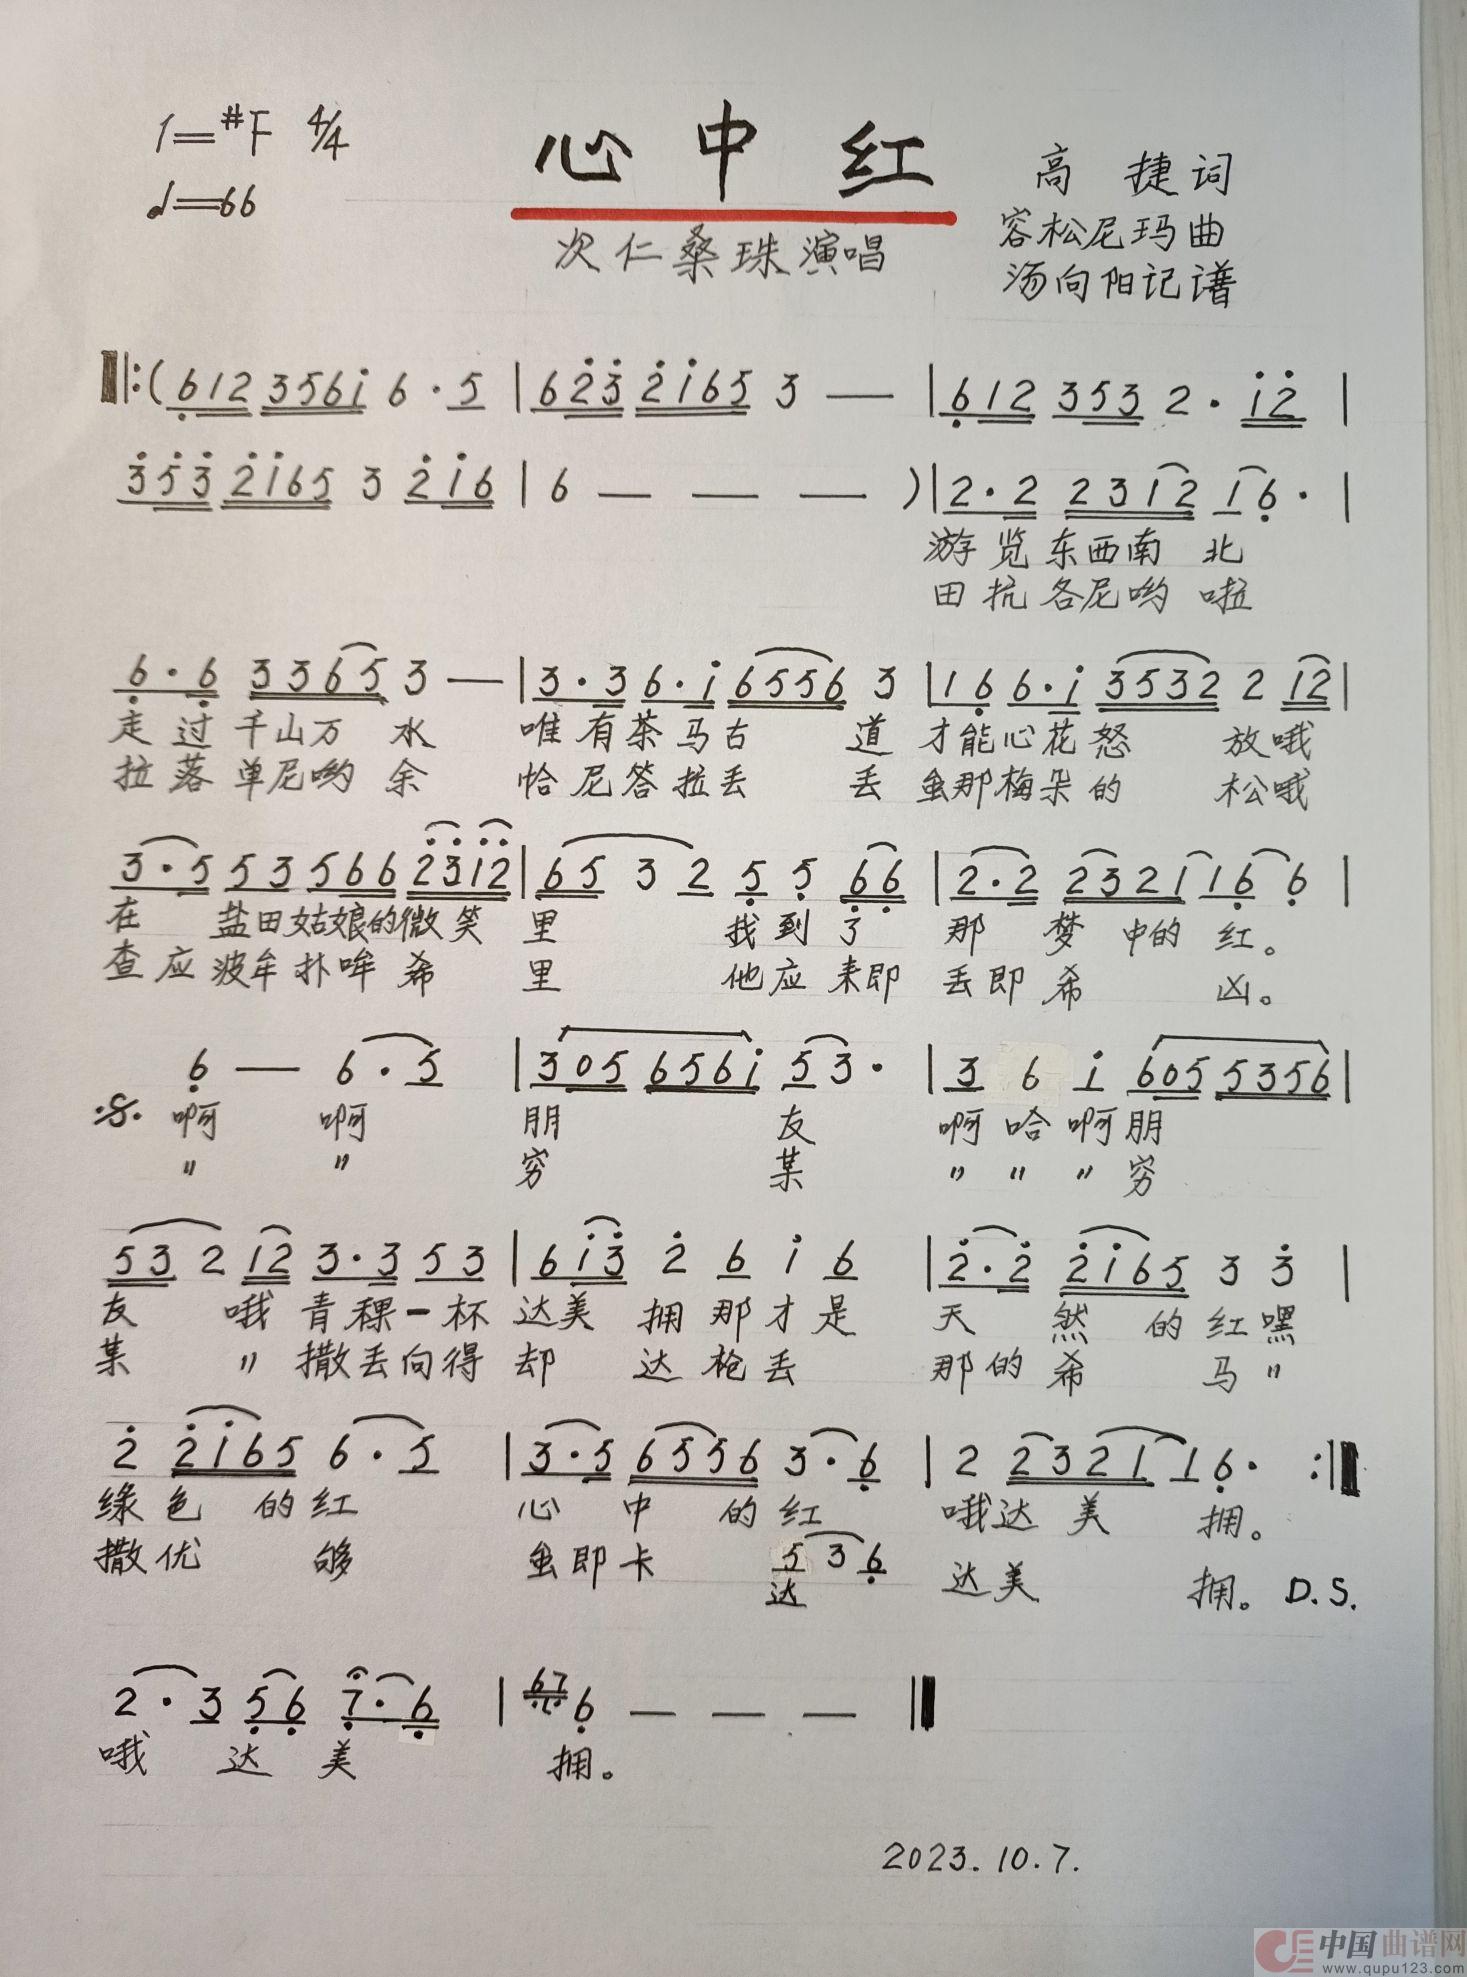 1=#F 4/4
♩=66
心中红
次仁桑珠演唱
高捷词
容松尼玛曲
汤向阳记谱
‖:(6̣12 3561̇ 6·5 | 62̇3̇ 2̇1̇65 3 — | 6̣12 353 2·1̇2̇ |
3̇5̇3̇ 2̇1̇65 3 2̇1̇6 | 6 — — — )| 2·2 2312 16̣· |
游览东西南北
田抗各尼哟啦
6̣·6̣ 3365 3 — | 3·3 6·1̇ 6556 3 | 16̣ 6·1̇ 3532 2 12 |
走过千山万水 唯有茶马古道 才能心花怒放哦
拉落单尼哟余 恰尼答拉丢丢 虽那梅朵的松哦
3·5 53 566 2̇3̇1̇2̇ | 65 3 2 5̣ 5̣ 6̣6̣ | 2·2 2321 16̣ 6̣ |
在盐田姑娘的微笑 里 找到了 那梦中的红。
查应波牟扑哞希 里 他应来即 丢即希 凶。
6̣ — 6·5 | 305 6561̇ 53· | 3 6 1̇ 605 5356 |
:S:. 啊 啊 朋 友 啊哈啊朋
〃 〃 穷 某 〃 〃 〃 穷
53 2 12 3·3 53 | 61̇3̇ 2̇ 6 1̇ 6 | 2̇·2̇ 2̇1̇65 3 3̇ |
友 哦 青稞一杯 达美 拥那才是 天然的红嘿
某 〃 撒丢向得 却 达枪丢 那的希 马〃
2̇ 2̇1̇65 6·5 | 3·5 6556 3·6̣ | 2 2321 16̣· :‖
绿色的红 心中的红 哦达美拥。
撒优 够 虽即卡 达美 拥。 D.S.
5 3 6̣
达
2·3 5̣6̣ 7̣·6̣ | 6̣7̣ 6̣ — — — ‖
哦 达 美 拥。
2023.10.7.
中国曲谱网
www.qupu123.com